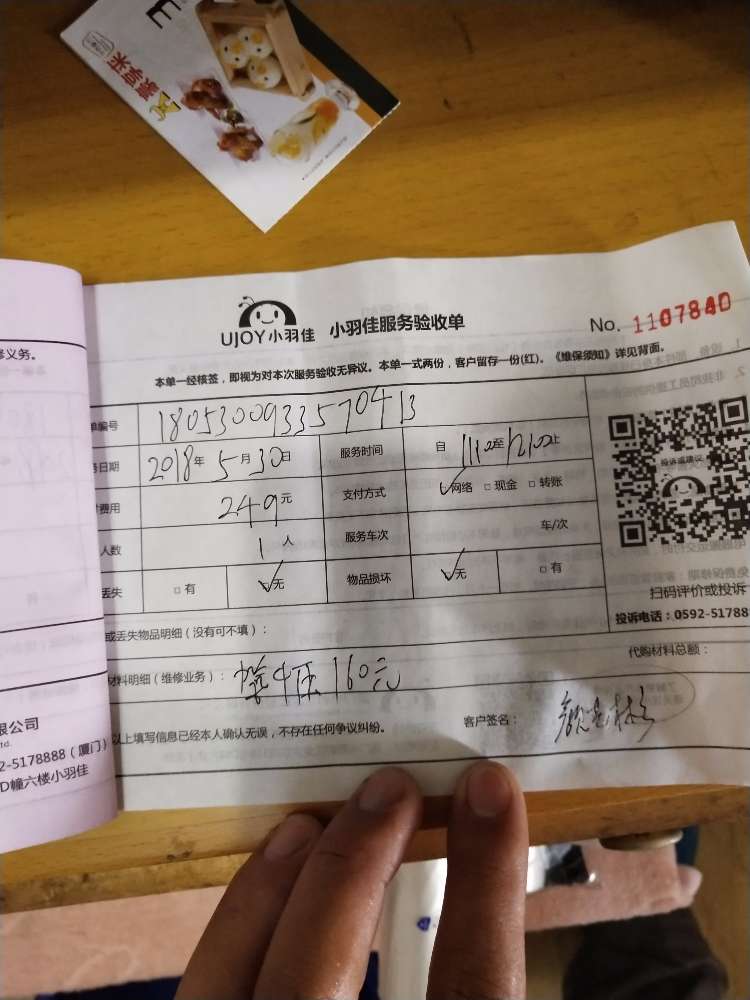 米
修义务。
UJOY小羽佳 小羽佳服务验收单
No. 1107840
本单一经核签，即视为对本次服务验收无异议。本单一式两份，客户留存一份(红)。《维保须知》详见背面。
单编号 18053009335704
日期 2018年5月30日 服务时间 自 至 止
费用 249元 支付方式 ✓网络 □现金 □转账
人数 1人 服务车次 车/次
丢失 □有 ✓无 物品损坏 ✓无 □有
投诉或建议
扫码评价或投诉
投诉电话：0592-51788
或丢失物品明细（没有可不填）：
代购材料总额：
材料明细（维修业务）： 160元
以上填写信息已经本人确认无误，不存在任何争议纠纷。 客户签名：
限公司
td.
2-5178888（厦门）
D幢六楼小羽佳